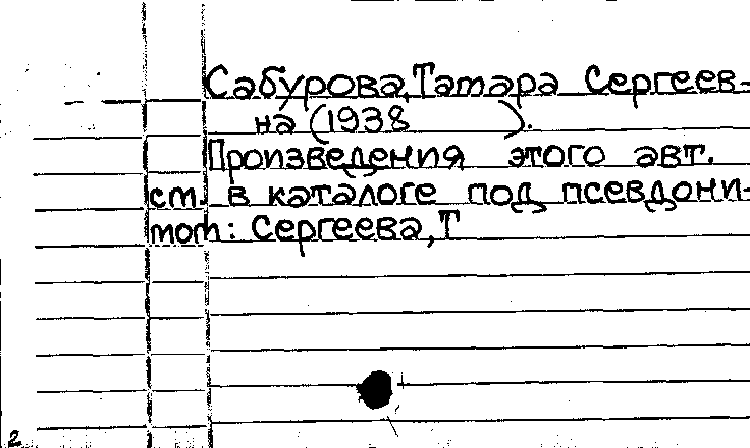 Сабурова, Тамара Сергеев-
на (1938 ).
Произведения этого авт.
см. в каталоге под псевдони-
мом: Сергеева, Т
2